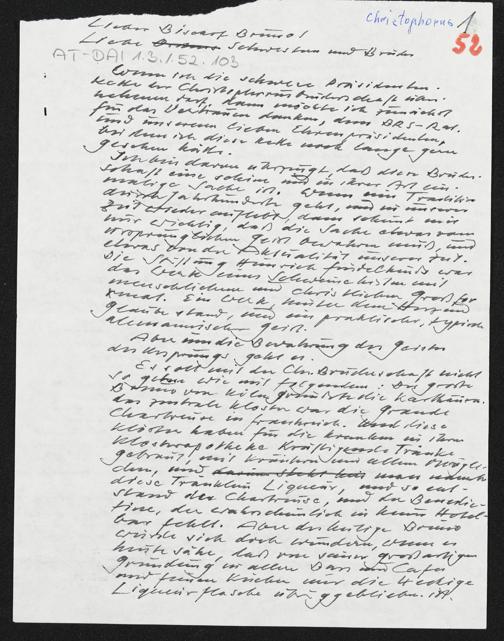 Christophorus 1
52
Lieber Bischof Bruno!
Liebe Schwestern und Brüder
AT-DAI 1.3.1.52.103
Wenn ich die schwere Präsidenten-
kette der Christophorusbruderschaft über-
nehmen darf, dann möchte ich zunächst
für das Vertrauen danken, dem BRS-Rat
und unserem lieben Ehrenpräsidenten,
bei dem ich diese Kette noch lange gern
gesehen hätte.
Ich bin davon überzeugt, daß diese Bruder-
schaft eine schöne und in ihrer Art ein-
malige Sache ist. Wenn eine Tradition
durch Jahrhunderte geht, und in unserer
Zeit wieder auflebt, dann scheint mir
sehr wichtig, daß die Sache etwas vom
ursprünglichen Geist bewahren muß, und
etwas von der Aktualität unserer Zeit.
Die Stiftung Heinrich Findelkinds war
das Werk eines Schweinehirten mit
menschlichem und christlichem Groß for
mat. Ein Werk, hinter dem Herz und
Glaube stand, und ein praktischer, typisch
alemannischer Geist.
Aber um die Bewahrung des Geistes
des Ursprungs geht es.
Es soll mit der Chr. Bruderschaft nicht
so gehen wie mit folgendem: Der große
Bruno von Köln gründete die Kartäuser.
das zentrale Kloster war die Grande
Chartreuse in Frankreich. Und diese
Klöster haben für die Kranken in ihren
Klosterapotheke Kräftigende Tränke
gebraut, mit Kräutern und allem Mögli-
chen, und
diese Tränklein Liqueur, und so ent-
stand der Chartreuse, und der Benedic-
tine, der wahrscheinlich in keiner Hotel-
bar fehlt. Aber der heilige Bruno
würde sich doch wundern, wenn er
heute sähe, daß von seiner großartigen
Gründung in allen Bars und Cafes
und feinen Küchen nur die eckige
Liqueurflasche übriggeblieben ist.